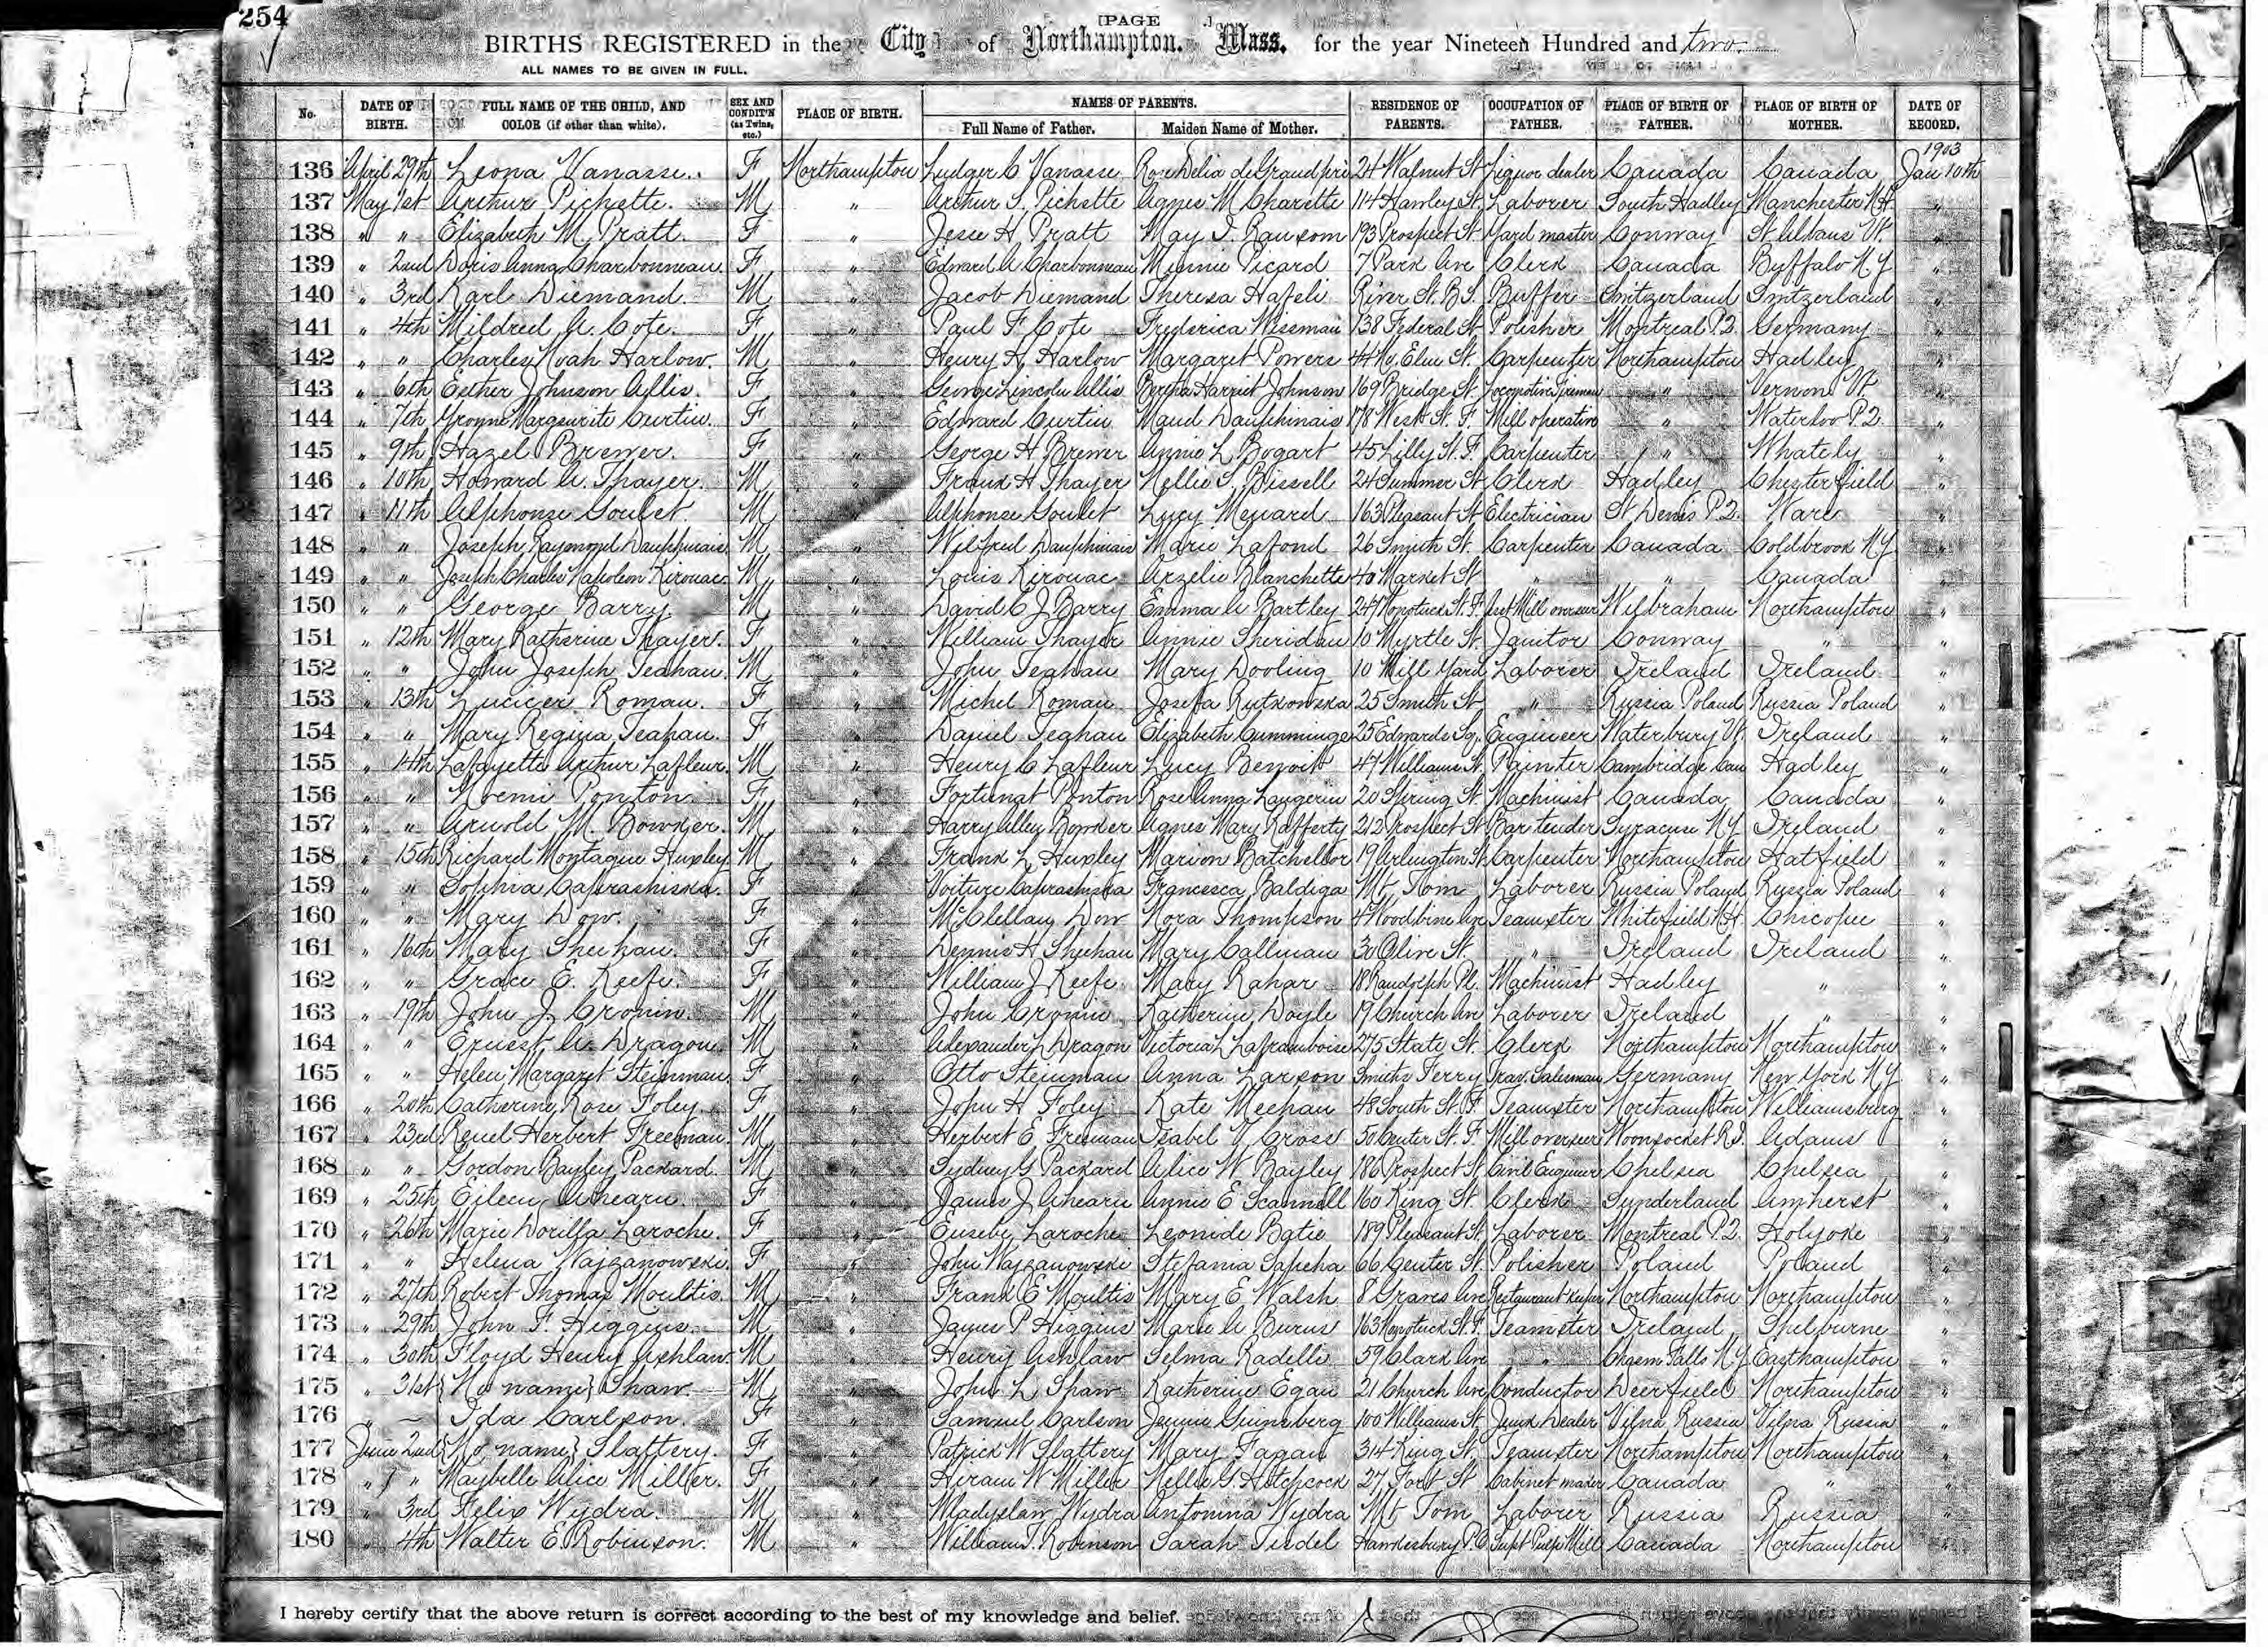 254
[PAGE .]
BIRTHS REGISTERED in the City of Northampton. Mass. for the year Nineteen Hundred and two.
ALL NAMES TO BE GIVEN IN FULL.
No. DATE OF BIRTH. FULL NAME OF THE CHILD, AND COLOR (if other than white). SEX AND CONDIT'N (as Twins, etc.) PLACE OF BIRTH. NAMES OF PARENTS. Full Name of Father. Maiden Name of Mother. RESIDENCE OF PARENTS. OCCUPATION OF FATHER. PLACE OF BIRTH OF FATHER. PLACE OF BIRTH OF MOTHER. DATE OF RECORD.
1903
136 April 29th Leona Vanasse. F Northampton Ludger C Vanasse Rose Delia deGrandpré 24 Walnut St Liquor dealer Canada Canada Jan 10th
137 May 1st Arthur Pichette. M " Arthur S. Pichette Agnes M Charette 114 Hawley St. Laborer South Hadley Manchester N.H. "
138 " " Elizabeth M. Pratt. F " Jesse H Pratt May I. Ransom 193 Prospect St Yard master Conway St Albans Vt. "
139 " 2nd Doris Anna Charbonneau. F " Edward A Charbonneau Minnie Picard 7 Park Ave Clerk Canada Buffalo N.Y "
140 " 3rd Karl Diemand. M " Jacob Diemand Theresa Hafeli River St. B.S. Buffer Switzerland Switzerland "
141 " 4th Mildred A. Cote. F " Paul F. Cote Frederica Wissman 138 Federal St Polisher Montreal P.Q. Germany "
142 " " Charles Noah Harlow. M " Henry H. Harlow Margaret Powers 44 No. Elm St. Carpenter Northampton Hadley "
143 " 6th Esther Johnson Allis. F " George Lincoln Allis Bertha Harriet Johnson 169 Bridge St. Locomotive Fireman " Vernon Vt. "
144 " 7th Yvonne Marguerite Curtin. F " Edward Curtin Maud Dauphinais 178 West St. F. Mill operative " Waterloo P.Q. "
145 " 9th Hazel Brewer. F " George H Brewer Annie L Bogart 45 Lilly St. F. Carpenter " Whately "
146 " 10th Howard A. Thayer. M " Frank H Thayer Nellie S. Bissell 24 Summer St Clerk Hadley Chesterfield "
147 " 11th Alphonse Goulet. M " Alphonse Goulet Lucy Menard 163 Pleasant St Electrician St Denis P.Q. Ware "
148 " " Joseph Raymond Dauphinais M " Wilfred Dauphinais Marie Lafond 26 Smith St. Carpenter Canada Coldbrook N.Y "
149 " " Joseph Charles Napoleon Kirouac. M " Louis Kirouac Arzelie Blanchette 40 Market St " " Canada "
150 " " George Barry. M " David C J Barry Emma A Bartley 247 Nonotuck St. F. Mill overseer Wilbraham Northampton "
151 " 12th Mary Katherine Thayer. F " William Thayer Annie Sheridan 10 Myrtle St. Janitor Conway " "
152 " " John Joseph Teahan. M " John Teahan Mary Dooling 10 Mill Yard Laborer Ireland Ireland "
153 " 13th Lucicer Roman. F " Michel Roman Josefa Rutkowska 25 Smith St " Russia Poland Russia Poland "
154 " " Mary Regina Teahan. F " Daniel Teahan Elizabeth Cummings 25 Edwards Sq. Engineer Waterbury Vt. Ireland "
155 " 14th Lafayette Arthur Lafleur. M " Henry C Lafleur Lucy Benoit 47 Williams St. Painter Cambridge Can Hadley "
156 " " Noemi Ponton. F " Fortunat Ponton Rose Anna Langevin 20 Spring St. Machinist Canada Canada "
157 " " Arnold M. Bowker. M " Harry Alley Bowker Agnes Mary Rafferty 212 Prospect St Bar tender Syracuse N.Y Ireland "
158 " 15th Richard Montague Huxley M " Frank L Huxley Marion Batchellor 19 Arlington St Carpenter Northampton Hatfield "
159 " " Sophia Caprashiska. F " Voiture Caprashiska Francesca Baldiga Mt. Tom Laborer Russia Poland Russia Poland "
160 " " Mary Dow. F " McClellan Dow Nora Thompson 4 Woodbine Ave Teamster Whitefield N.H. Chicopee "
161 " 16th Mary Sheehan. F " Dennis H Sheehan Mary Callinan 30 Olive St. " Ireland Ireland "
162 " " Grace E. Keefe. F " William J Keefe Mary Rahar 18 Randolph Pl. Machinist Hadley " "
163 " 19th John J. Cronin. M " John Cronin Katherine Doyle 19 Church Ave Laborer Ireland " "
164 " " Ernest A. Dragon. M " Alexander L Dragon Victoria L Laframboise 275 State St. Clerk Northampton Northampton "
165 " " Helen Margaret Steinman. F " Otto Steinman Anna Larson Smiths Ferry Trav. Salesman Germany New York N.Y "
166 " 20th Catherine Rose Foley. F " John H Foley Kate Meehan 48 South St. F. Teamster Northampton Williamsburg "
167 " 23rd Reuel Herbert Freeman. M " Herbert E Freeman Isabel V Cross 50 Center St. F. Mill overseer Woonsocket R.I. Adams "
168 " " Gordon Bayley Packard. M " Sydney G Packard Alice W Bayley 186 Prospect St. Civil Engineer Chelsea Chelsea "
169 " 25th Eileen Ahearn. F " James J Ahearn Annie E Scannell 160 King St. Clerk Sunderland Amherst "
170 " 26th Marie Dorilla Laroche. F " Eusebe Laroche Leonide Batie 189 Pleasant St. Laborer Montreal P.Q. Holyoke "
171 " " Helena Wajzanowski. F " John Wajzanowski Stefania Sapeha 66 Center St. Polisher Poland Poland "
172 " 27th Robert Thomas Moultis. M " Frank E Moultis Mary E Walsh 8 Graves Ave Restaurant keeper Northampton Northampton "
173 " 29th John F. Higgins. M " James P Higgins Marie A Burns 163 Nonotuck St. F. Teamster Ireland Shelburne "
174 " 30th Floyd Henry Ashlaw. M " Henry Ashlaw Selma Radelli 59 Clark Ave " Falls N.Y Easthampton "
175 " 31st {No name} Shaw. M " John L Shaw Katherine Egan 21 Church Ave Conductor Deerfield Northampton "
176 " – Ida Carlson. F " Samuel Carlson Jennie Guinsberg 100 Williams St Junk Dealer Vilna Russia Vilna Russia "
177 June 2nd {No name} Slattery. F " Patrick W Slattery Mary Fagan 314 King St. Teamster Northampton Northampton "
178 " " Maybelle Alice Miller. F " Hiram W Miller Nellie G. Hitchcock 27 Fort St Cabinet maker Canada " "
179 " 3rd Felix Wydra. M " Wladyslaw Wydra Antonina Wydra Mt Tom Laborer Russia Russia "
180 " 4th Walter E. Robinson. M " William T. Robinson Sarah Tisdel Hawkesbury P.O Supt Pulp Mill Canada Northampton "
I hereby certify that the above return is correct according to the best of my knowledge and belief.